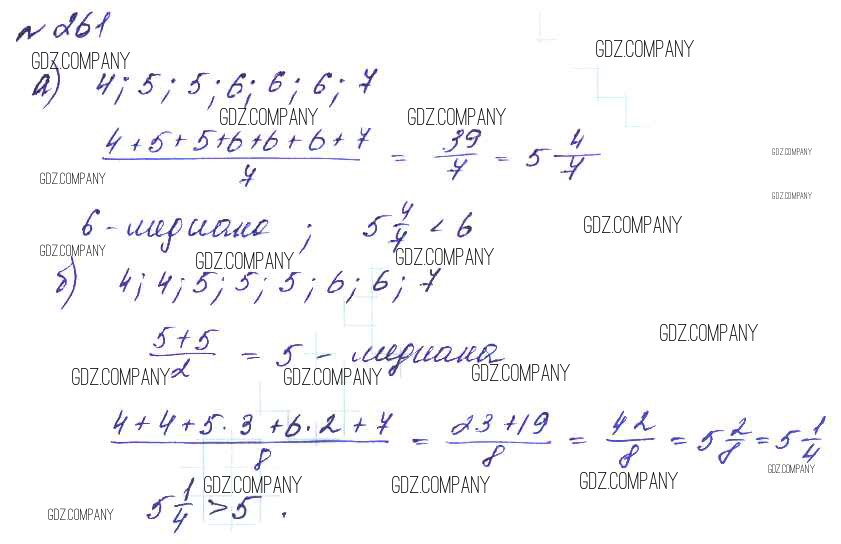 № 261
GDZ.COMPANY GDZ.COMPANY
а) 4; 5; 5; 6; 6; 6; 7
GDZ.COMPANY GDZ.COMPANY
(4+5+5+6+6+6+7)/7 = 39/7 = 5 4/7
GDZ.COMPANY
GDZ.COMPANY
GDZ.COMPANY
6 - медиана; 5 4/7 < 6
GDZ.COMPANY
GDZ.COMPANY GDZ.COMPANY GDZ.COMPANY
б) 4; 4; 5; 5; 5; 6; 6; 7
GDZ.COMPANY
(5+5)/2 = 5 - медиана
GDZ.COMPANY GDZ.COMPANY GDZ.COMPANY
(4+4+5·3+6·2+7)/8 = (23+19)/8 = 42/8 = 5 2/8 = 5 1/4
GDZ.COMPANY GDZ.COMPANY GDZ.COMPANY GDZ.COMPANY
5 1/4 > 5.
GDZ.COMPANY